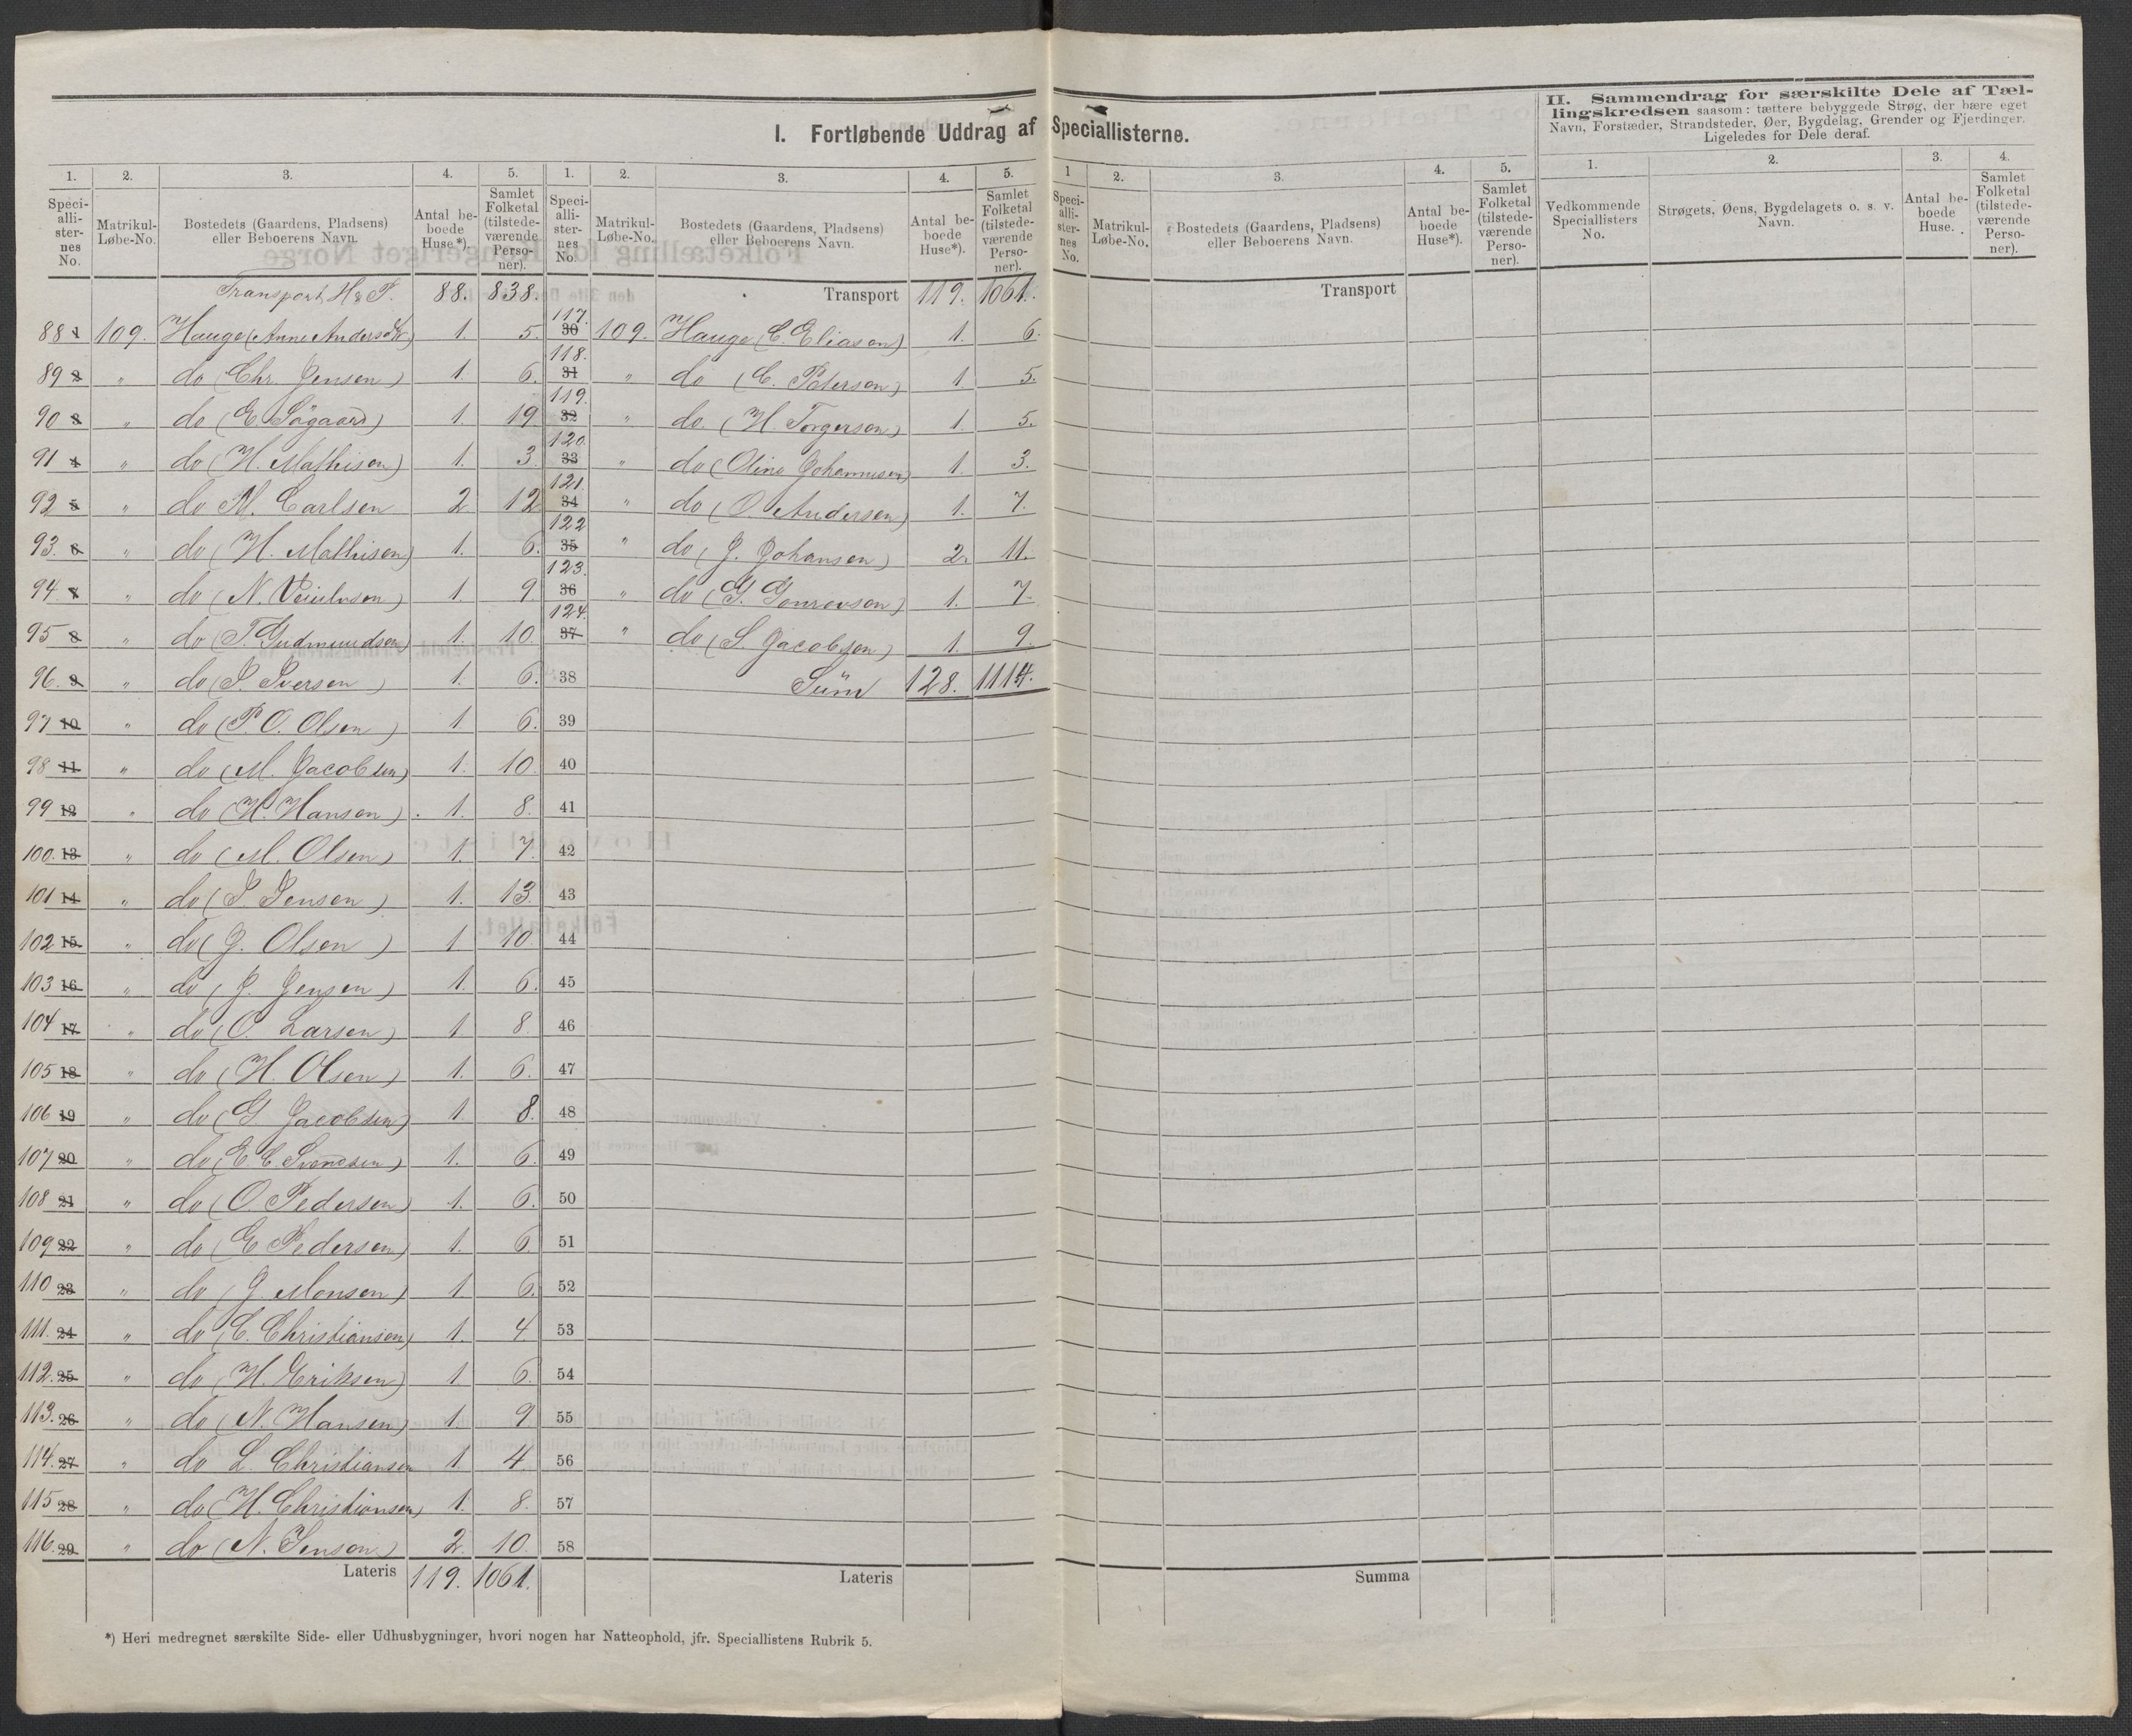 I. Fortløbende Uddrag af Speciallisterne.
II. Sammendrag for særskilte Dele af Tæl-
lingskredsen saasom: tættere bebyggede Strøg, der bære eget
Navn, Forstæder, Strandsteder, Øer, Bygdelag, Grender og Fjerdinger.
Ligeledes for Dele deraf.
1. 2. 3. 4. 5. 1. 2. 3. 4. 5. 1 2. 3. 4. 5. 1. 2. 3. 4.
Speci-alli-ster-nes No. Matrikul-Løbe-No. Bostedets (Gaardens, Pladsens) eller Beboerens Navn. Antal be-boede Huse*). Samlet Folketal (tilstede-værende Perso-ner).
Speci-alli-ster-nes No. Matrikul-Løbe-No. Bostedets (Gaardens, Pladsens) eller Beboerens Navn. Antal be-boede Huse*). Samlet Folketal (tilstede-værende Perso-ner).
Speci-alli-ster-nes No. Matrikul-Løbe-No. Bostedets (Gaardens, Pladsens) eller Beboerens Navn. Antal be-boede Huse*). Samlet Folketal (tilstede-værende Perso-ner).
Vedkommende Speciallisters No. Strøgets, Øens, Bygdelagets o. s. v. Navn. Antal be-boede Huse. Samlet Folketal (tilstede-værende Perso-ner).
Transport H & P. 88. 838.
88 1 109. Hauge (Anne Andersdtr) 1. 5.
89 2 " do (Chr. Jensen) 1. 6.
90 3 " do (E. Sögaard) 1. 19
91 4 " do (H. Mathisen) 1. 3
92 5 " do M. Carlsen 2 12
93. 6 " do (H. Mathisen) 1. 6.
94 7 " do (N. ) 1. 9
95 8 " do (T. Gudmundsen) 1. 10.
96. 9 " do (I. Iversen) 1. 6.
97 10 " do (P. O. Olsen) 1 6.
98 11 " do (M. Jacobsen) 1. 10.
99 12 " do (H. Hansen) 1. 8.
100. 13 " do (M. Olsen) 1. 7.
101 14 " do (I Jensen) 1. 13.
102 15 " do (J. Olsen) 1 10
103 16 " do (J. Jensen) 1. 6.
104 17 " do (O. Larsen) 1 8.
105 18 " do (H. Olsen) 1. 6.
106 19 " do (G. Jacobsen) 1. 8.
107 20 " do (E C. Svendsen) 1. 6.
108 21 " do (O. Pedersen) 1. 6.
109 22 " do (E Pedersen) 1. 6.
110 23 " do (J. Monsen) 1 6.
111. 24 " do (C. Christiansen) 1. 4
112. 25 " do (H. Eriksen) 1. 6.
113. 26 " do (N. Hansen) 1. 9
114. 27 " do L. Christiansen 1. 4
115 28 " do (H. Christiansen) 1. 8.
116. 29 " do (N. Jensen) 2. 10.
Lateris 119. 1061.
Transport 119. 1061.
117. 30 109. Hauge (C. Eliasen) 1. 6.
118. 31 " do (C. Petersen) 1 5.
119. 32 " do (H. Torgersen) 1. 5.
120. 33 " do (Oline Johannesen) 1. 3.
121. 34 " do (O. Andersen) 1. 7.
122 35 " do (J. Johansen) 2. 11.
123. 36 " do (G. ) 1. 7.
124. 37 " do (S. Jacobsen) 1. 9.
38 Sum 128. 1114.
39
40
41
42
43
44
45
46
47
48
49
50
51
52
53
54
55
56
57
58
Lateris
Transport
Summa
*) Heri medregnet særskilte Side- eller Udhusbygninger, hvori nogen har Natteophold, jfr. Speciallistens Rubrik 5.